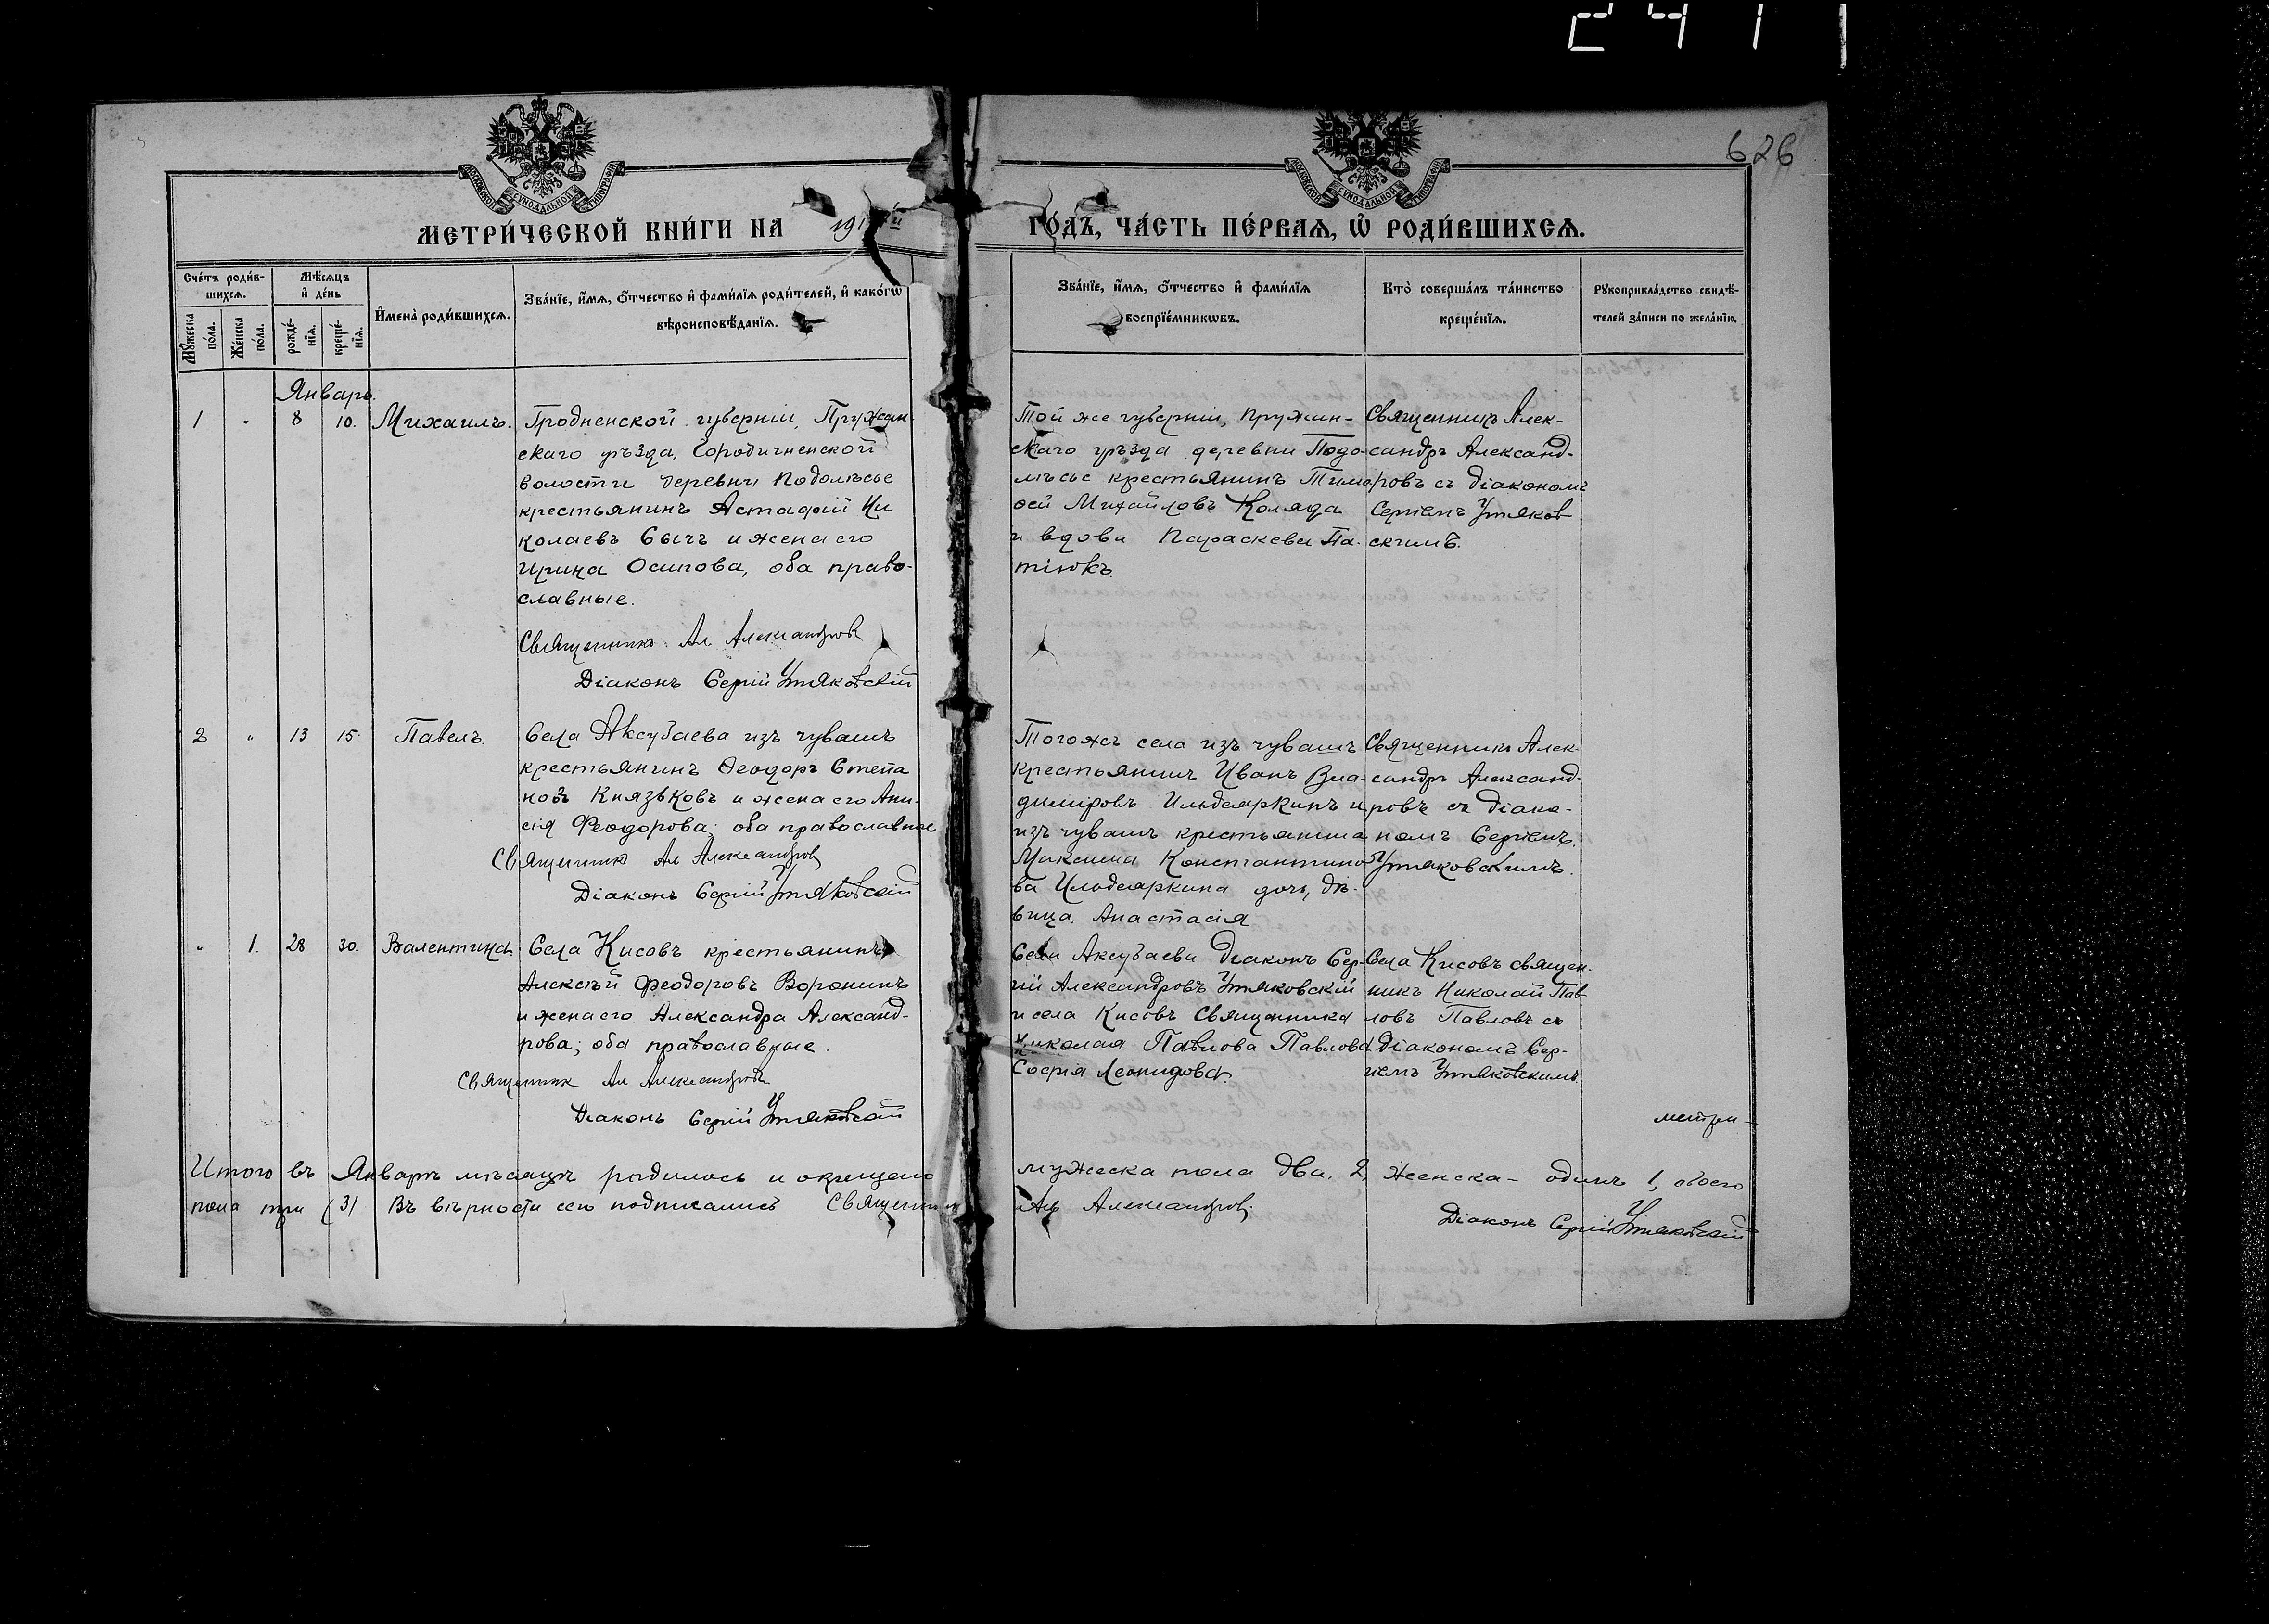 2411
626
МОСКОВСКОЙ СУНОДАЛЬНОЙ ТИПОГРАФІИ
МОСКОВСКОЙ СУНОДАЛЬНОЙ ТИПОГРАФІИ
МЕТРИ́ЧЕСКОЙ КНИ́ГИ НА 191
ГО́ДЪ, ЧА́СТЬ ПЕ́РВАѦ, Ѡ҆ РОДИ́ВШИХСѦ.
Сче́тъ роди́в-
шихсѧ.
Мꙋ́жеска по́ла.
Же́нска по́ла.
Мѣ́сѧцъ
и҆ де́нь
рожде́-нїѧ.
креще́-нїѧ.
И҆мена̀ роди́вшихсѧ.
Зва́нїе, и҆́мѧ, ѻ҆́тчество и҆ фами́лїѧ роди́телей, и҆ како́гѡ
вѣроисповѣ́данїѧ.
Зва́нїе, и҆́мѧ, ѻ҆́тчество и҆ фами́лїѧ
воспрїе́мникѡвъ.
Кто̀ соверша́лъ та́инство
креще́нїѧ.
Рꙋкоприкла́дство свидѣ́-
телей за́писи по жела́нїю.
Январь.
1 " 8 10. Михаилъ.
Гродненской губерніи, Пружан-
скаго уѣзда, Городичненской
волости деревни Подолѣсье
крестьянинъ Астафій Ни
колаевъ Сычъ и жена его
Ирина Осипова, оба право-
славные.
Священникъ Ал Александровъ
Діаконъ Сергій Утяковскій
Той же губерніи, Пружин-
скаго уѣзда деревни Подо-
лѣсье крестьянинъ Тимо
фей Михайловъ Коляда
и вдова Параскева Па-
тіюкъ.
Священникъ Алек-
сандръ Александ-
ровъ съ діакономъ
Сергіемъ Утяков
скимъ.
2 " 13 15. Павелъ.
Села Аксубаева изъ чувашъ
крестьянинъ Ѳеодоръ Степа
новъ Князьковъ и жена его Ани-
сія Феодорова; оба православные
Священникъ Ал Александровъ
Діаконъ Сергій Утяковскій
Того же села изъ чувашъ
крестьянинъ Иванъ Вла-
диміровъ Ильдеяркинъ и
изъ чувашъ крестьянина
Максима Константино
ва Ильдеяркина дочь, дѣ-
вица, Анастасія
Священникъ Алек-
сандръ Александ-
ровъ съ діако-
номъ Сергіемъ
Утяковскимъ.
" 1. 28 30. Валентина.
Села Кисовъ крестьянинъ
Алексѣй Феодоровъ Воронинъ
и жена его Александра Александ-
рова; оба православные.
Священник Ал Александровъ
Діаконъ Сергій Утяковскій
Села Аксубаева Діаконъ Сер-
гій Александровъ Утяковскій
и села Кисовъ Священника
Николая Павлова Павлова
Софія Леонидова.
Села Кисовъ священ-
никъ Николай Пав
ловъ Павловъ съ
діакономъ Сер-
гіемъ Утяковскимъ.
метри-
Итого въ Январѣ мѣсяцѣ родилось и окрещено мужеска пола два, 2, женска - одинъ 1, обоего
пола три (3) Въ вѣрности сего подписались Священникъ Ал Александровъ.
Діаконъ Сергій Утяковскій